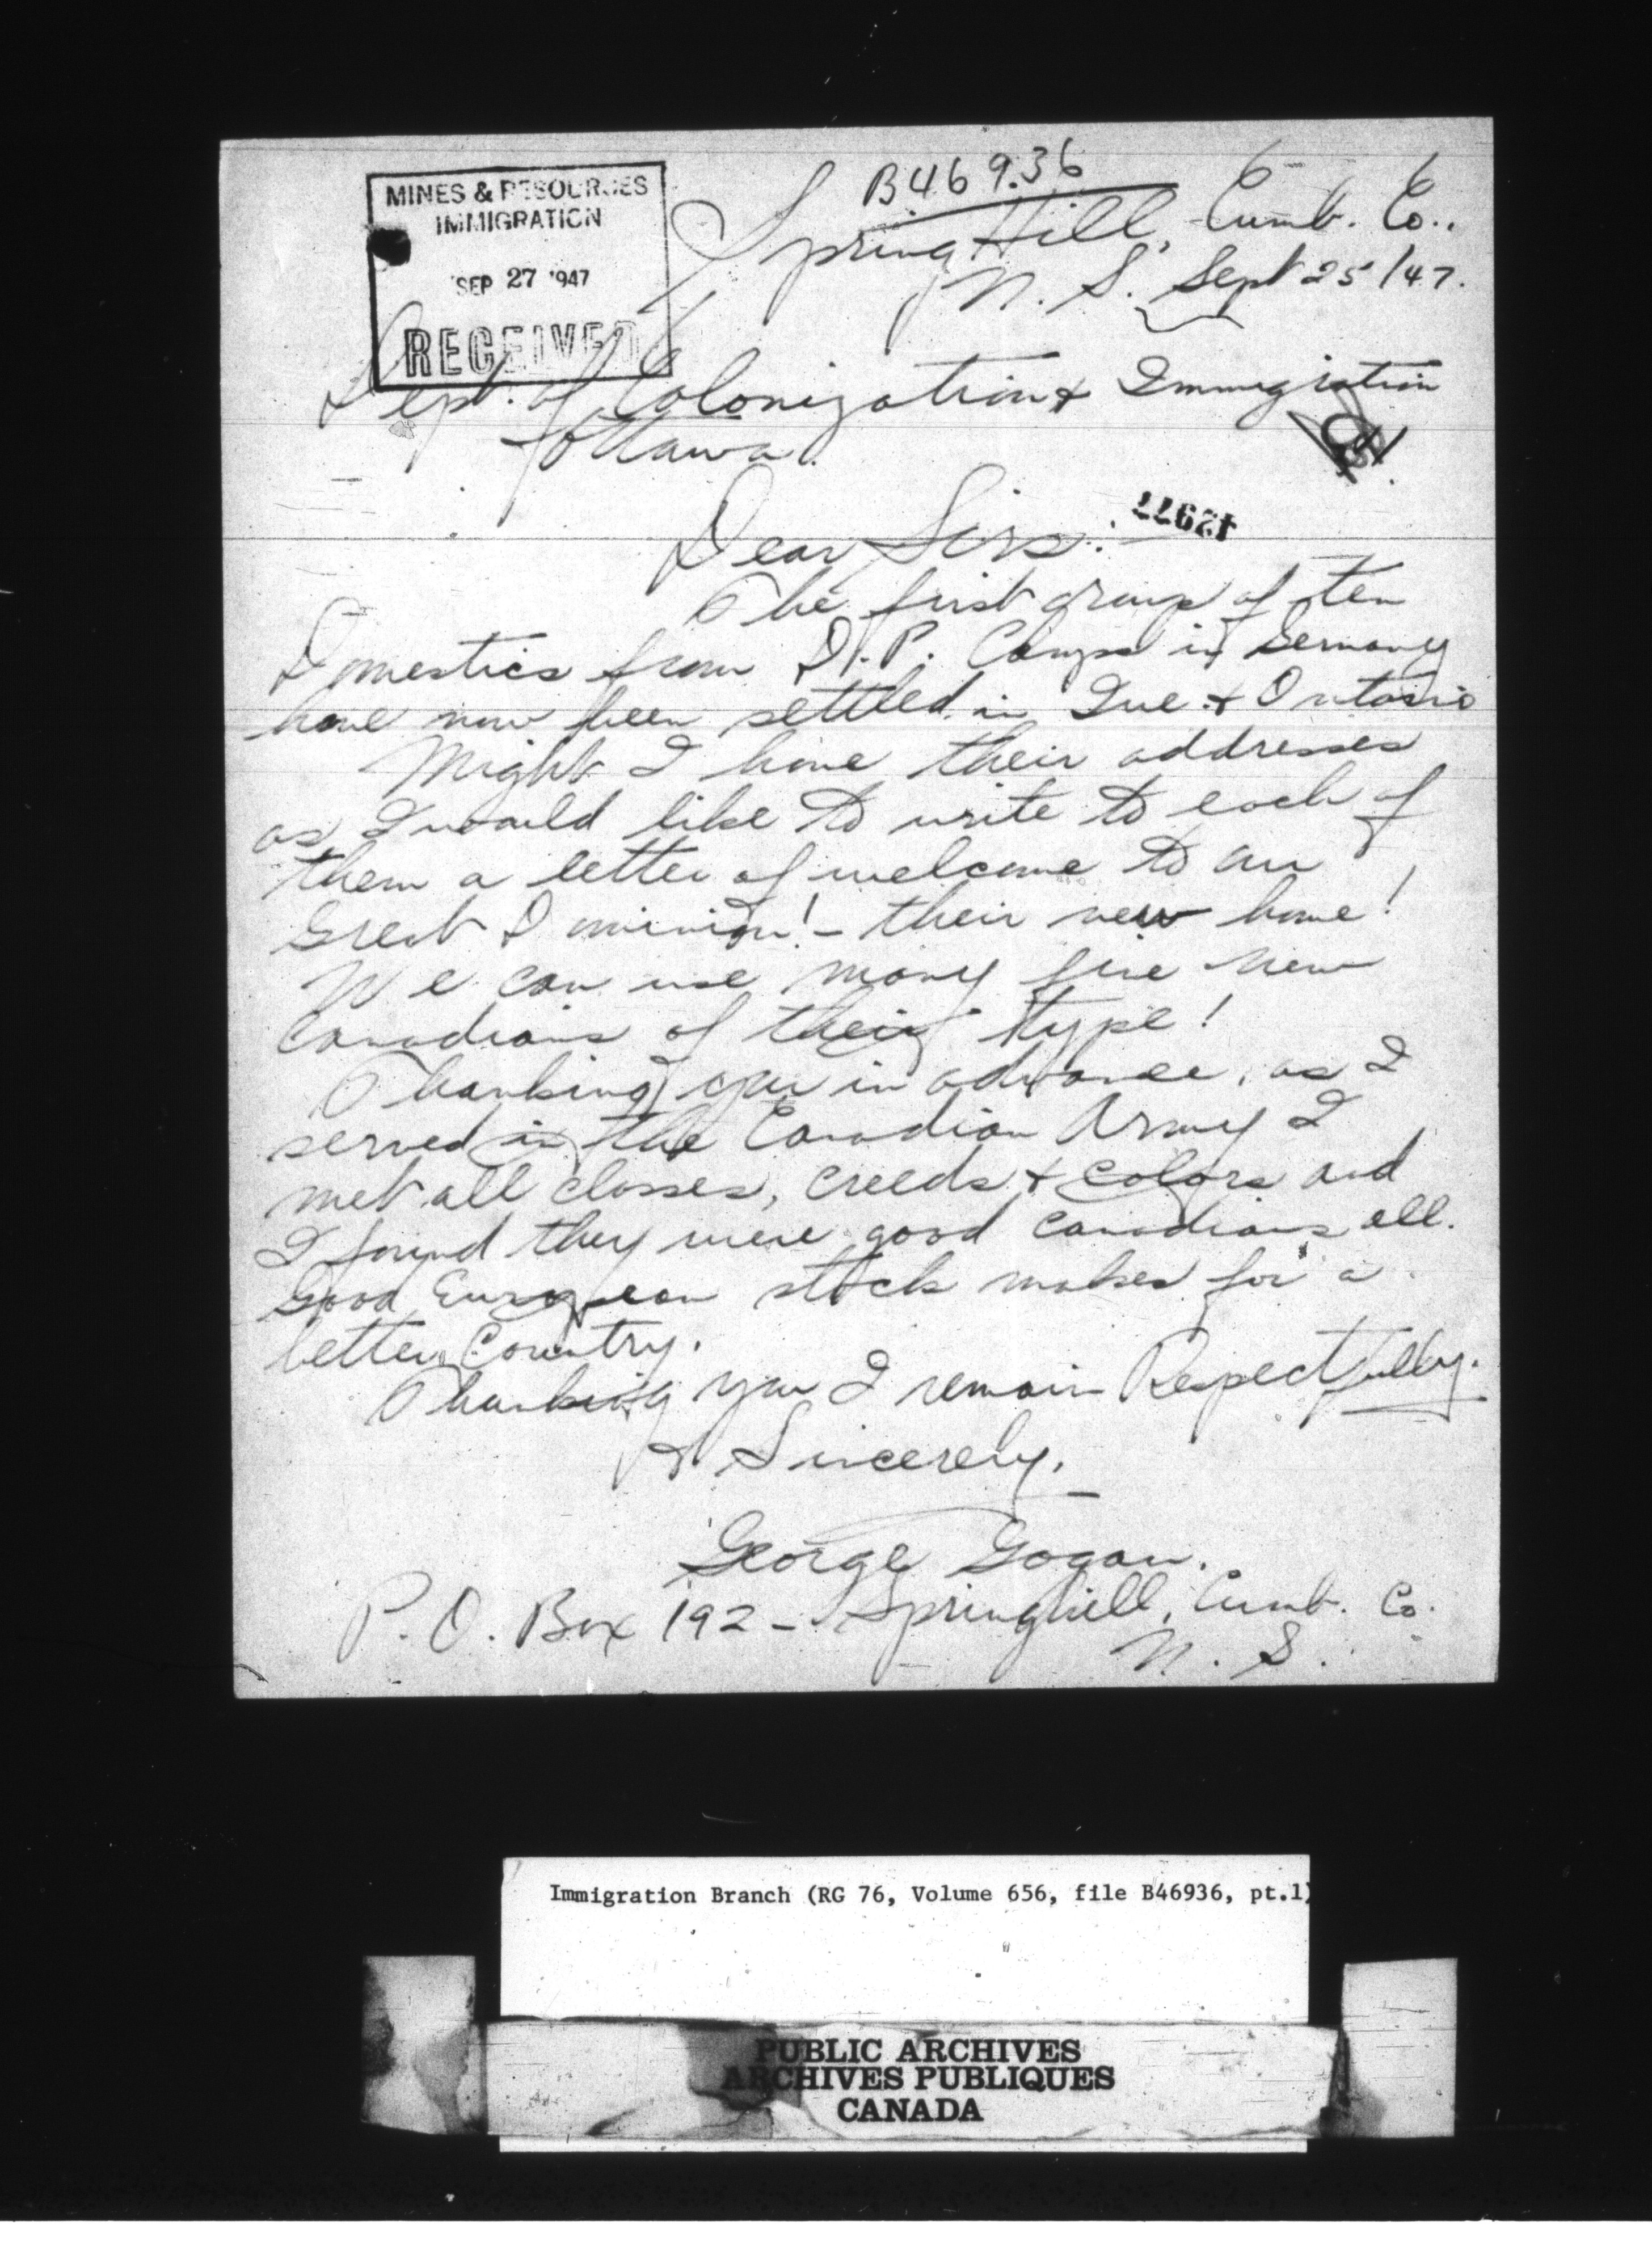 B46936
MINES & RESOURCES
IMMIGRATION
SEP 27 1947
RECEIVED
Spring Hill, Cumb. Co.,
N. S. Sept 25 /47.
Dept. of Colonization & Immigration
Ottawa.
Dear Sirs:
The first group of ten
Domestics from D. P. Camps in Germany
have now been settled in Que & Ontario
Might I have their addresses
as I would like to write to each of
them a letter of welcome to our
Great Dominion! - their new home!
We can use many fine new
Canadians of their type!
Thanking you in advance, as I
served in the Canadian Army I
met all classes, creeds & colors and
I found they were good Canadians all.
Good European stock makes for a
better Country.
Thanking you I remain Respectfully.
& Sincerely,
George Gogan.
P. O. Box 192 - Springhill, Cumb. Co.
N. S.
Immigration Branch (RG 76, Volume 656, file B46936, pt.1)
PUBLIC ARCHIVES
ARCHIVES PUBLIQUES
CANADA